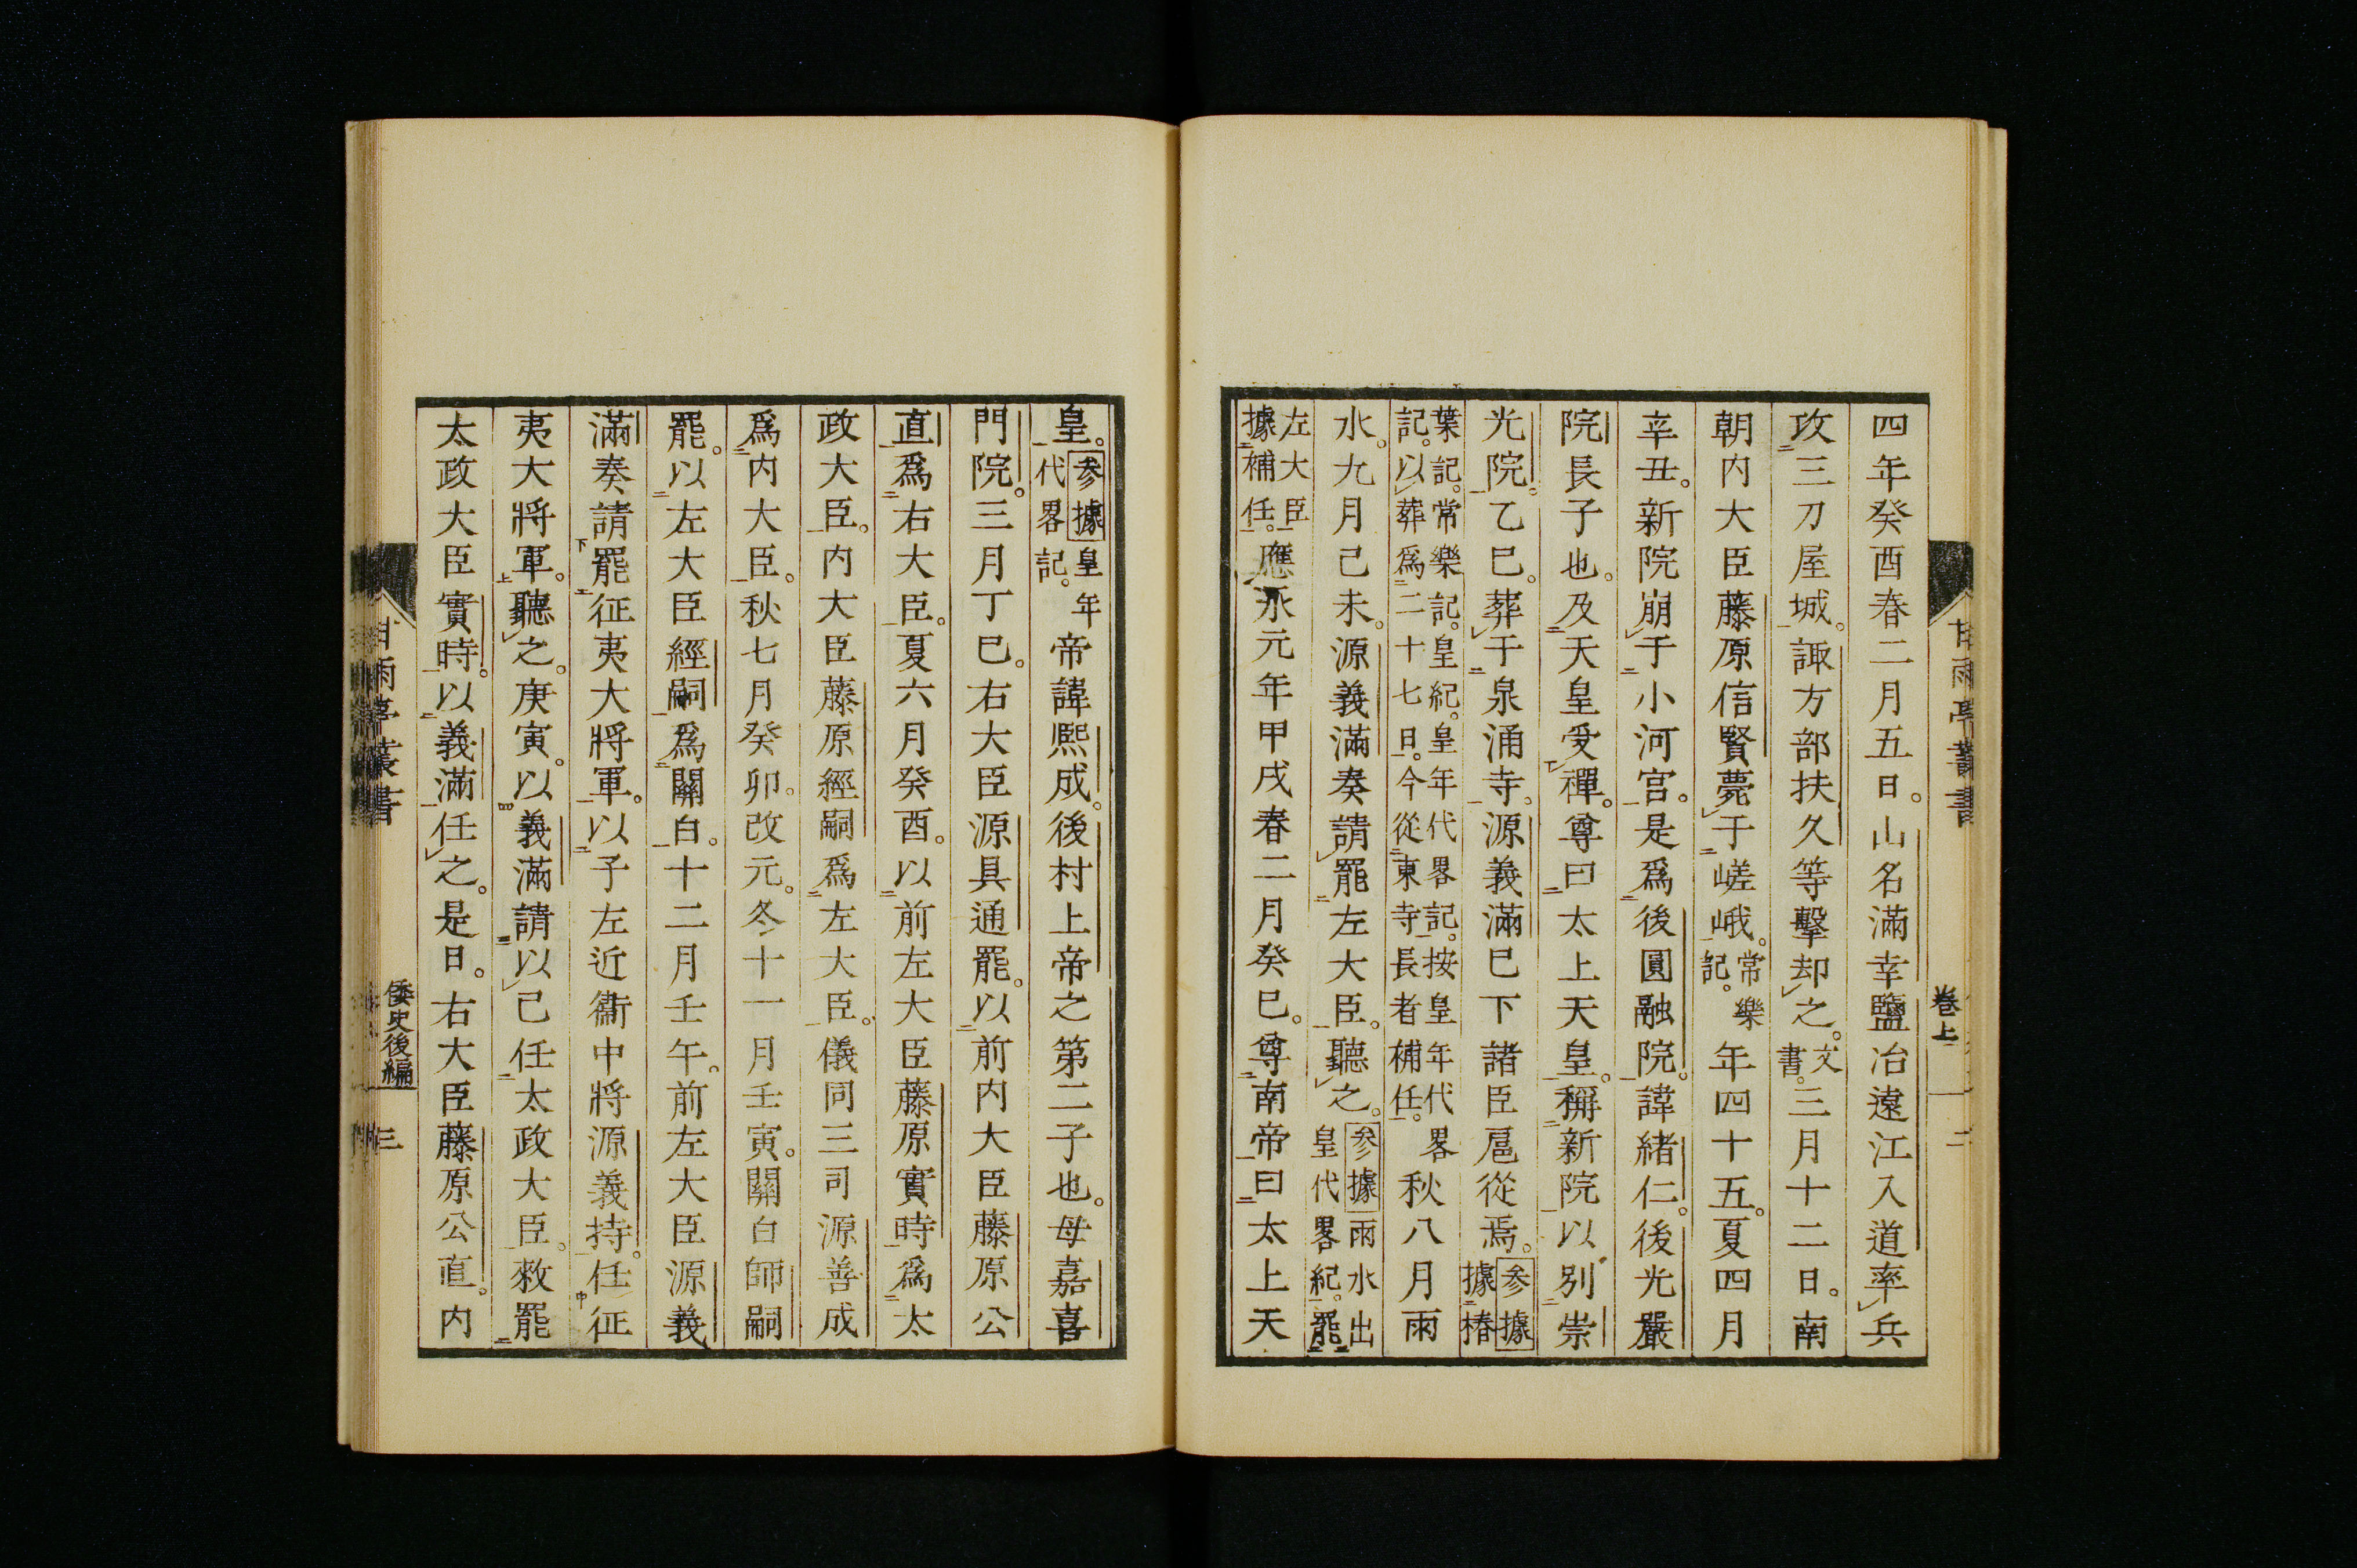 四年癸酉春二月五日。山名滿幸鹽冶遠江入道率兵
攻三刀屋城。諏方部扶久等擊却之。文書。三月十二日。南
朝内大臣藤原信賢薨于嵯峨。常樂記。年四十五。夏四月
辛丑。新院崩于小河宮。是爲後圓融院。諱緒仁。後光嚴
院長子也。及天皇受禪。尊曰太上天皇。稱新院以別崇
光院。乙巳。葬于泉涌寺。源義滿已下諸臣扈從焉。参據據椿
葉記。常樂記。皇紀。皇年代畧記。按皇年代畧記。以葬爲二十七日。今從東寺長者補任。秋八月雨
水。九月己未。源義滿奏請罷左大臣。聽之。参據雨水出皇代畧紀。罷
左大臣據補任。應永元年甲戌春二月癸巳。尊南帝曰太上天
皇。参據皇年代畧記。帝諱熙成。後村上帝之第二子也。母嘉喜
門院。三月丁巳。右大臣源具通罷。以前内大臣藤原公
直爲右大臣。夏六月癸酉。以前左大臣藤原實時爲太
政大臣。内大臣藤原經嗣爲左大臣。儀同三司源善成
爲内大臣。秋七月癸卯。改元。冬十一月壬寅。關白師嗣
罷。以左大臣經嗣爲關白。十二月壬午。前左大臣源義
滿奏請罷征夷大將軍。以子左近衞中將源義持任征
夷大將軍。聽之。庚寅。以義滿請以己任太政大臣。敕罷
太政大臣實時。以義滿任之。是日。右大臣藤原公直。内
甘雨亭叢書
卷上
二
甘雨亭叢書
倭史後編
三